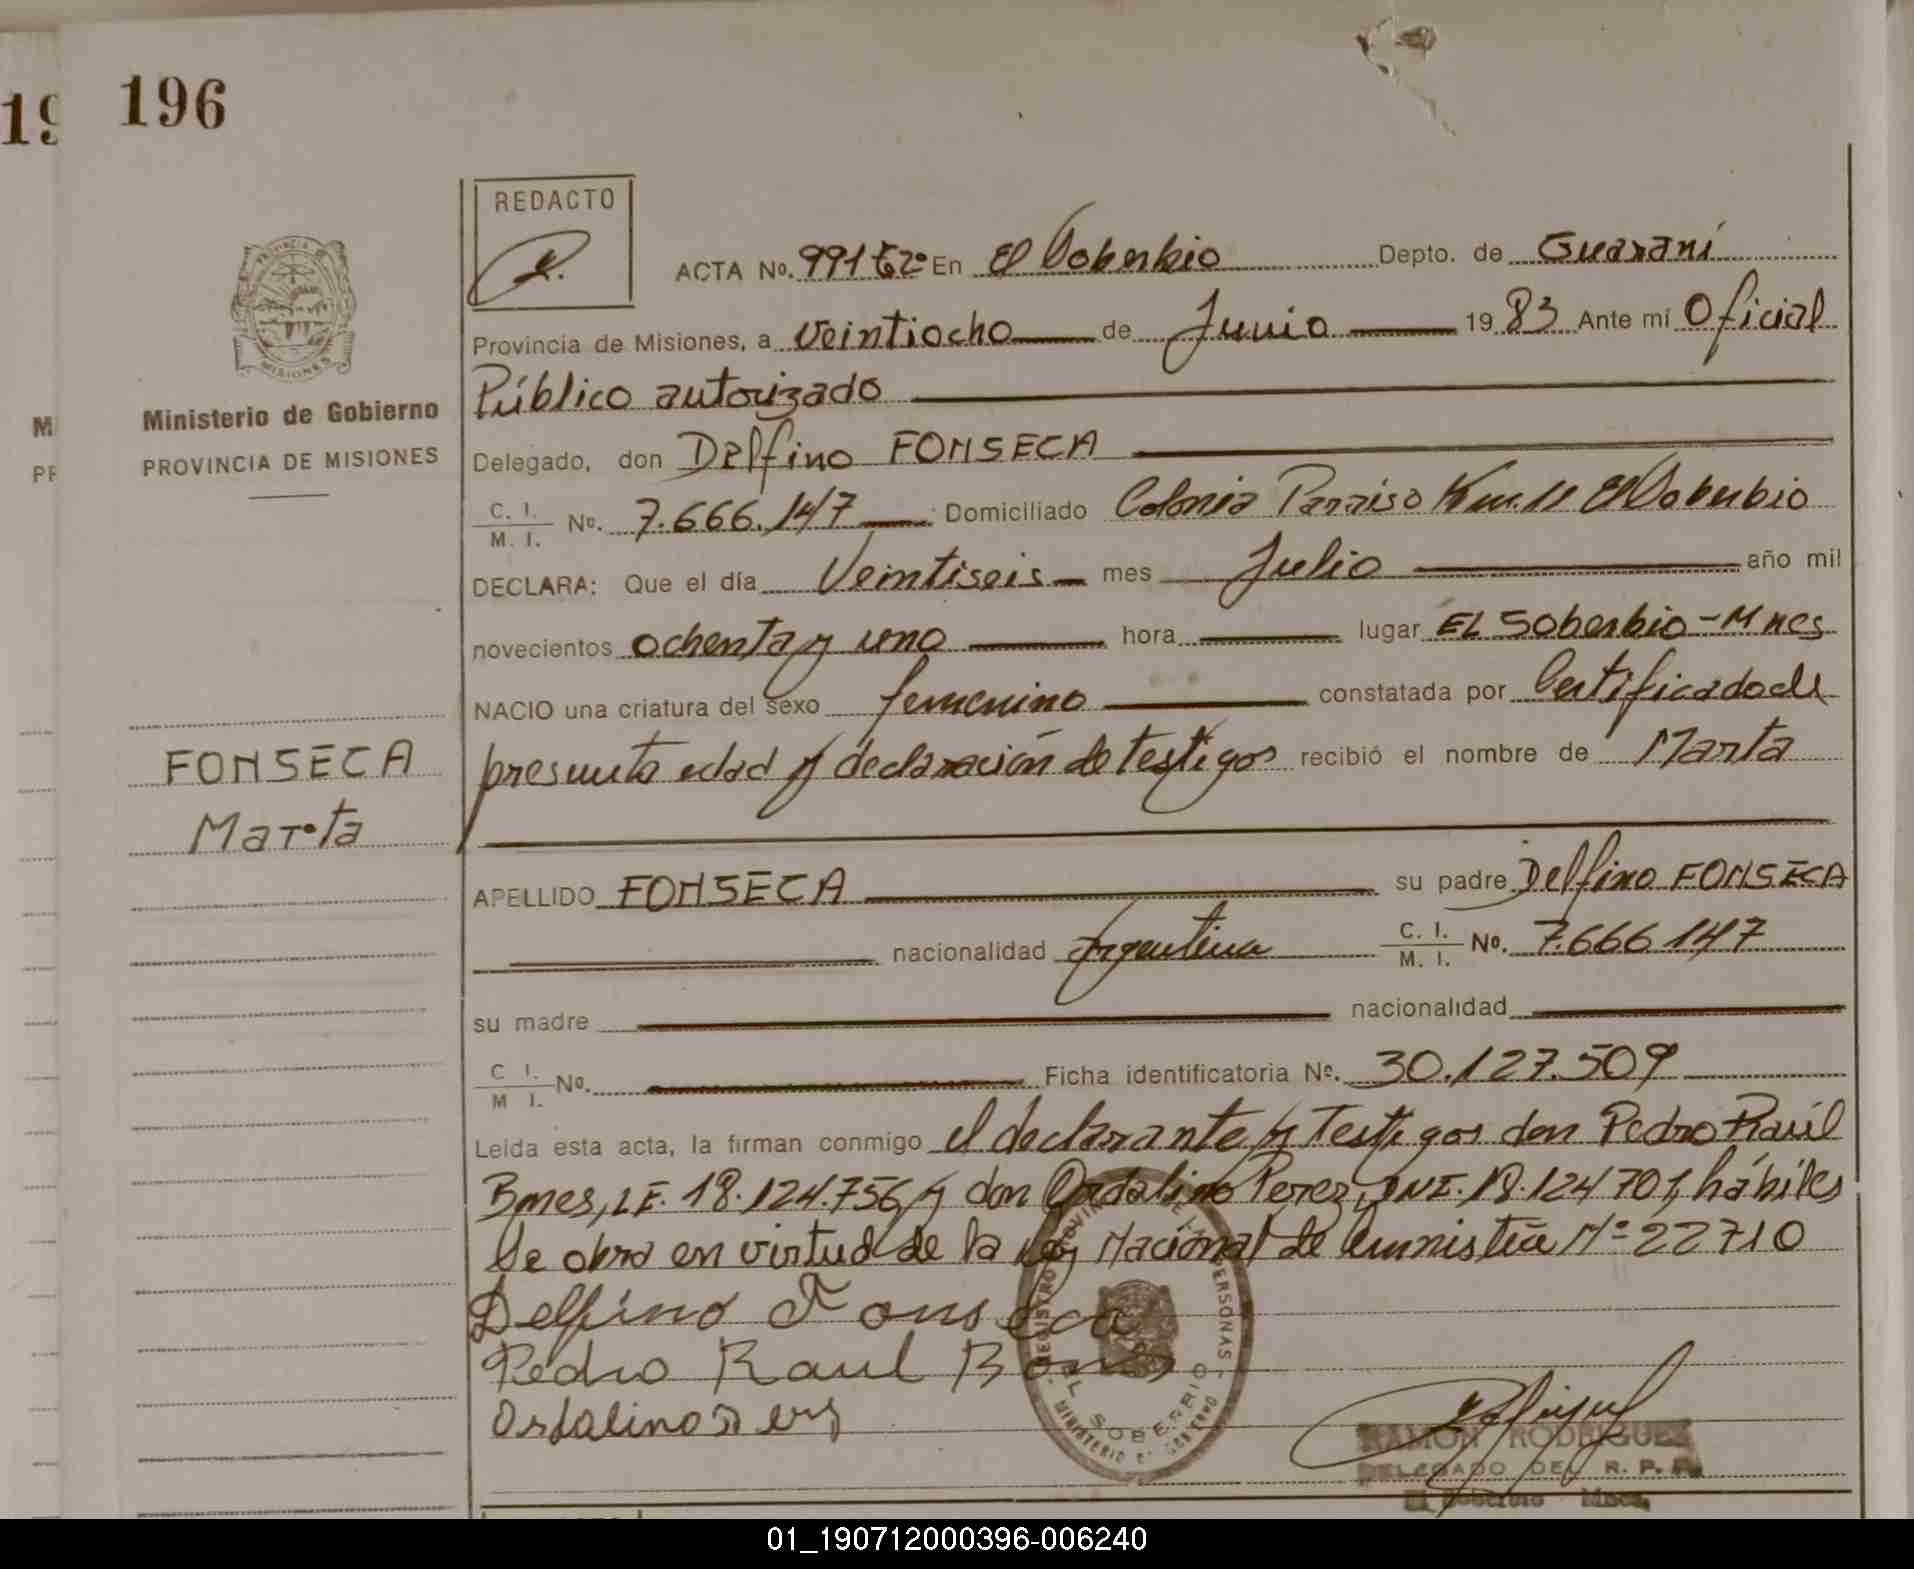 19 196
REDACTO
ACTA No. 991 tº2º En El Soberbio Depto. de Guaraní
Provincia de Misiones, a veintiocho de Junio 19 83 Ante mí Oficial
Público autorizado
Ministerio de Gobierno
PROVINCIA DE MISIONES
Delegado, don Delfino FONSECA
C. I. / M. I. No. 7.666.147 Domiciliado Colonia Paraiso Km. 11 El Soberbio
DECLARA: Que el día Veintiseis mes Julio año mil
novecientos ochenta y uno hora lugar EL Soberbio - Mnes
NACIO una criatura del sexo femenino constatada por Certificado de
FONSECA
Marta
presunta edad y declaración de testigos recibió el nombre de Marta
APELLIDO FONSECA su padre Delfino FONSECA
nacionalidad Argentina C. I. / M. I. No. 7.666 147
su madre nacionalidad
C I. / M I. No. Ficha identificatoria No. 30.127.509
Leida esta acta, la firman conmigo el declarante y Testigos don Pedro Raúl
Bmes, LE. 18.124.756, y don Ordalino Perez, DNI. 18.124 701, hábiles
Se obra en virtud de la Ley Nacional de Amnistía Nº 22710
Delfino Fonseca
Pedro Raul
Ordalino
REGISTRO PROVINCIAL DE LAS PERSONAS
EL SOBERBIO
MINISTERIO DE GOBIERNO
RAMON RODRIGUEZ
DELEGADO DEL R. P. P.
El Soberbio Mnes.
01_190712000396-006240